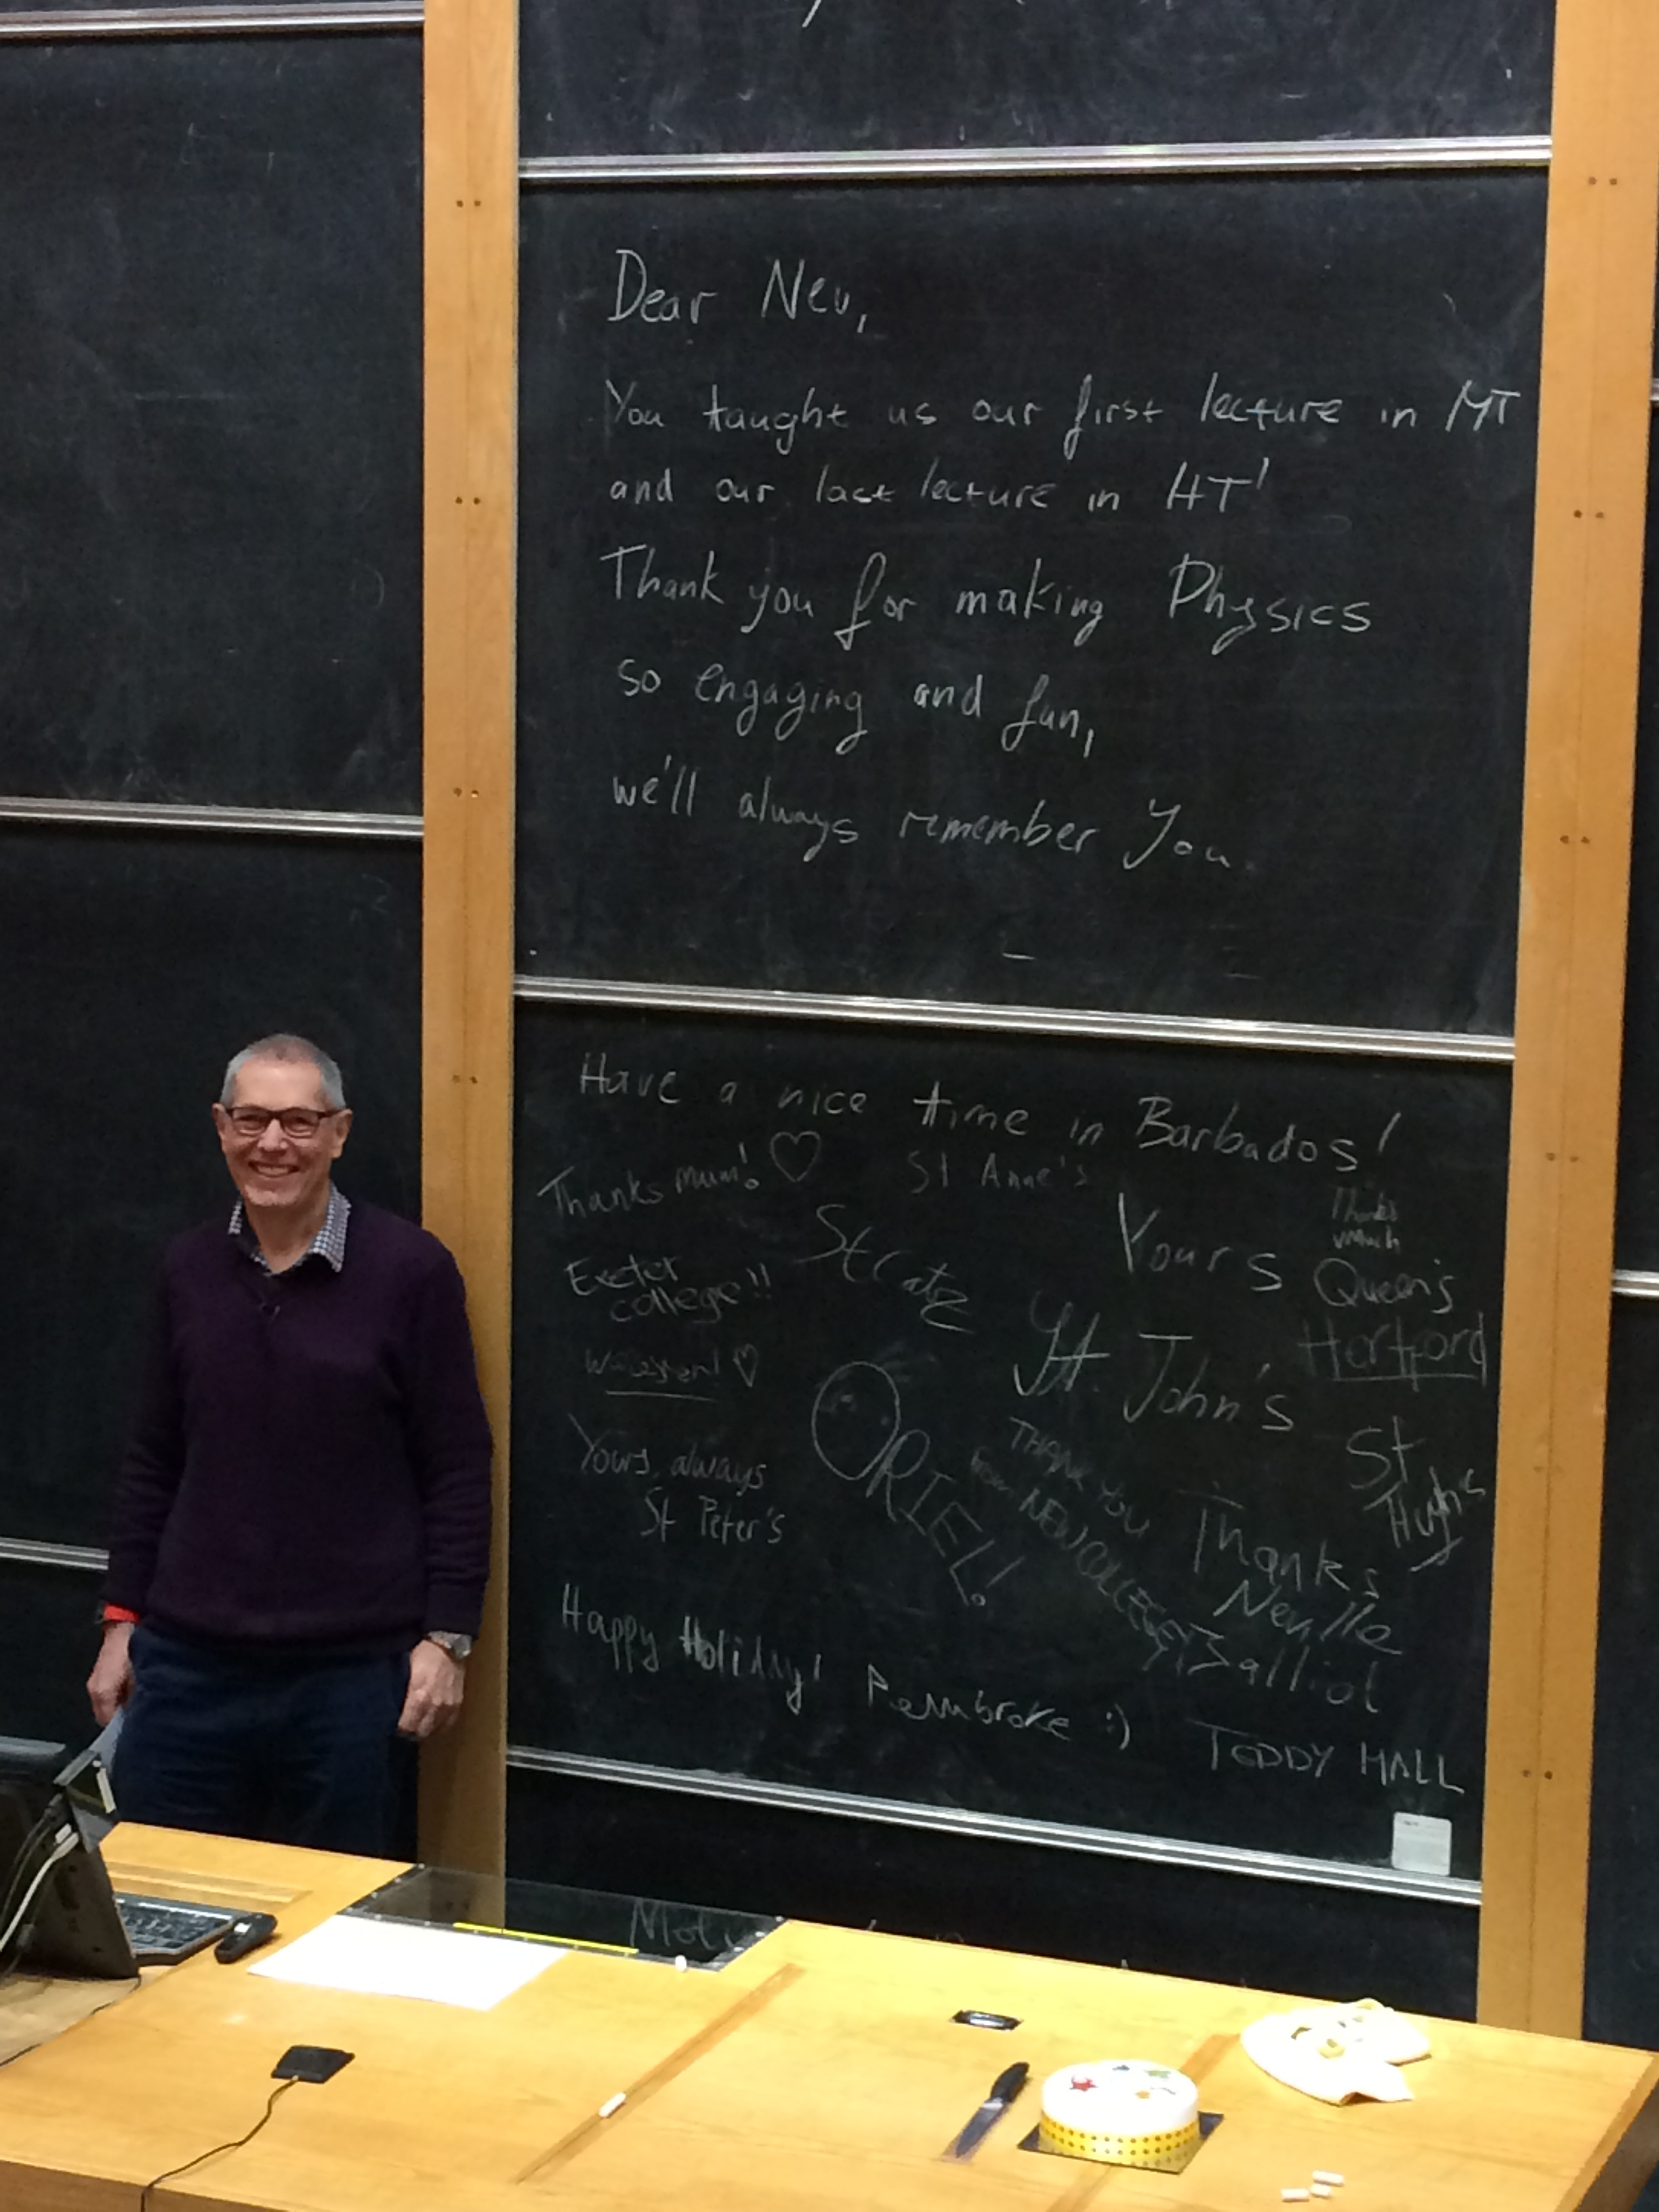 Dear Nev,
You taught us our first lecture in MT
and our last lecture in HT!
Thank you for making Physics
so engaging and fun,
we'll always remember You.
Have a nice time in Barbados!
Thanks mum! ♡
St Anne's
St Catz
Yours
Thanks
Queen's
Exeter
college!!
Hertford
St. John's
♡
ORIEL!
St
Hugh's
Yours, always
St Peter's
THANK YOU
from NEW COLLEGE!
Thanks
Neville
Balliol
Happy Holiday!
Pembroke :)
TEDDY HALL